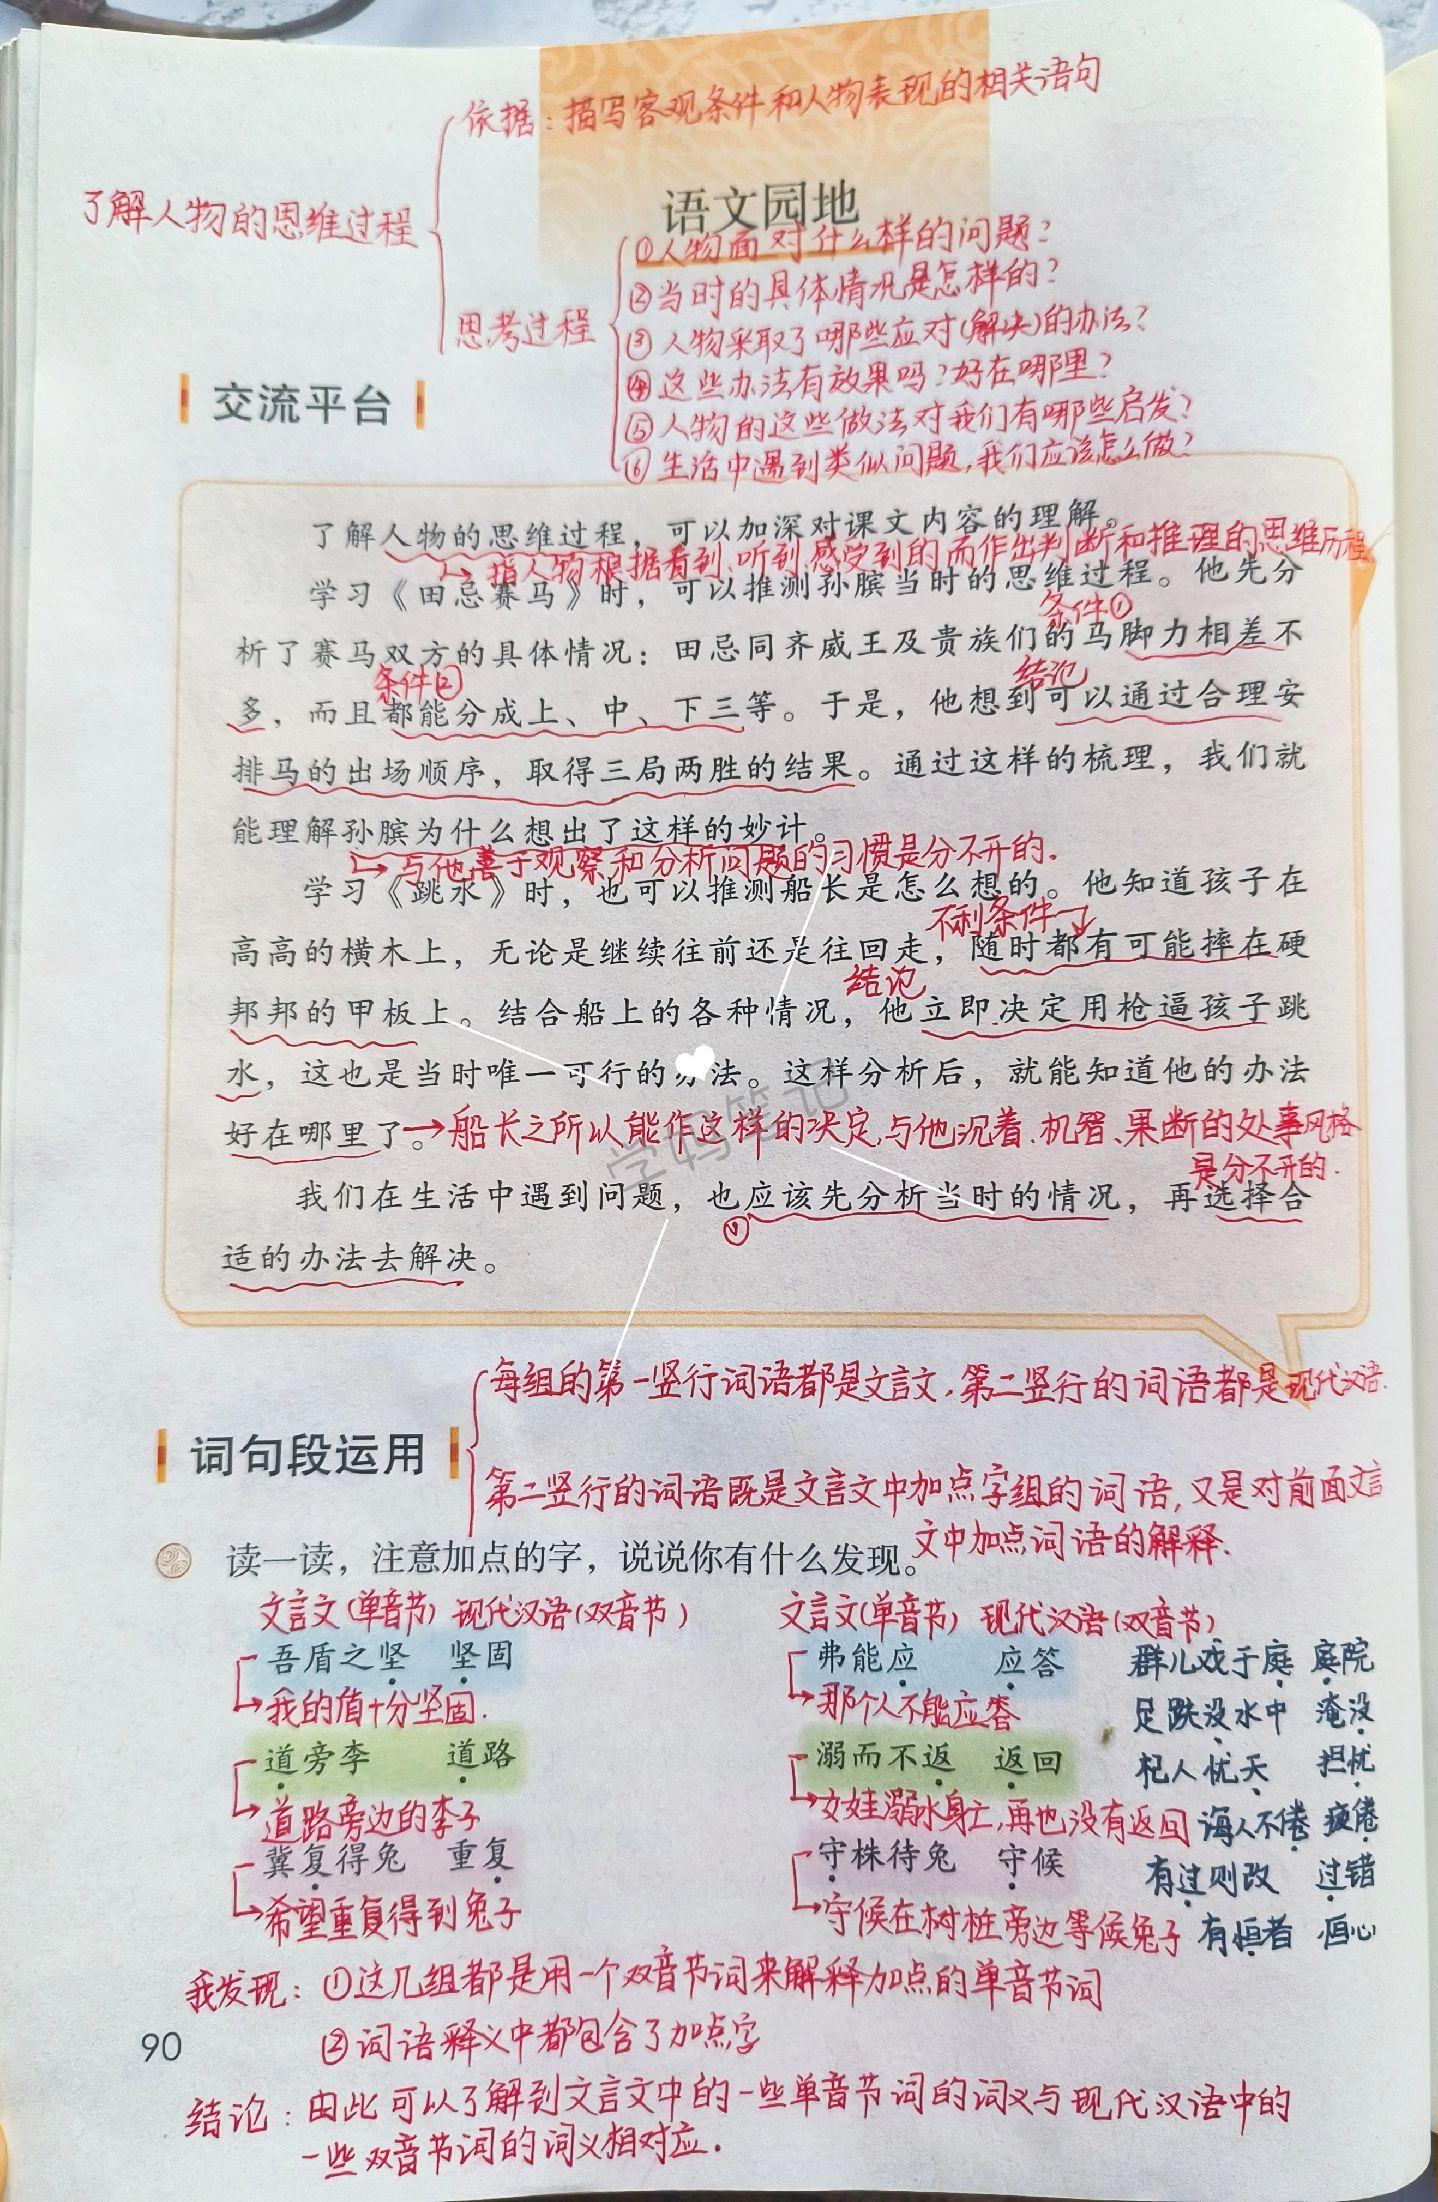 依据：描写客观条件和人物表现的相关语句
了解人物的思维过程
语文园地
①人物面对什么样的问题？
②当时的具体情况是怎样的？
思考过程
③人物采取了哪些应对(解决)的办法？
④这些办法有效果吗？好在哪里？
⑤人物的这些做法对我们有哪些启发？
⑥生活中遇到类似问题，我们应该怎么做？
交流平台
了解人物的思维过程，可以加深对课文内容的理解。
→指人物根据看到、听到、感受到的而作出判断和推理的思维历程
学习《田忌赛马》时，可以推测孙膑当时的思维过程。他先分
条件①
析了赛马双方的具体情况：田忌同齐威王及贵族们的马脚力相差不
条件② 结论
多，而且都能分成上、中、下三等。于是，他想到可以通过合理安
排马的出场顺序，取得三局两胜的结果。通过这样的梳理，我们就
能理解孙膑为什么想出了这样的妙计。
→与他善于观察和分析问题的习惯是分不开的.
学习《跳水》时，也可以推测船长是怎么想的。他知道孩子在
不利条件
高高的横木上，无论是继续往前还是往回走，随时都有可能摔在硬
结论
邦邦的甲板上。结合船上的各种情况，他立即决定用枪逼孩子跳
水，这也是当时唯一可行的办法。这样分析后，就能知道他的办法
好在哪里了。→船长之所以能作这样的决定，与他沉着、机智、果断的处事风格
是分不开的.
学妈笔记
我们在生活中遇到问题，也应该先分析当时的情况，再选择合
适的办法去解决。
每组的第一竖行词语都是文言文，第二竖行的词语都是现代汉语.
词句段运用
第二竖行的词语既是文言文中加点字组的词语，又是对前面文言
文中加点词语的解释.
读一读，注意加点的字，说说你有什么发现。
文言文(单音节) 现代汉语(双音节) 文言文(单音节) 现代汉语(双音节)
吾盾之坚 坚固 弗能应 应答 群儿戏于庭 庭院
→我的盾十分坚固. →那个人不能应答 足跌没水中 淹没
道旁李 道路 溺而不返 返回 杞人忧天 担忧
→道路旁边的李子 →女娃溺水身亡，再也没有返回 诲人不倦 疲倦
冀复得兔 重复 守株待兔 守候 有过则改 过错
→希望重复得到兔子 →守候在树桩旁边等候兔子 有恒者 恒心
我发现：①这几组都是用一个双音节词来解释加点的单音节词
90
②词语释义中都包含了加点字
结论：由此可以了解到文言文中的一些单音节词的词义与现代汉语中的
一些双音节词的词义相对应.